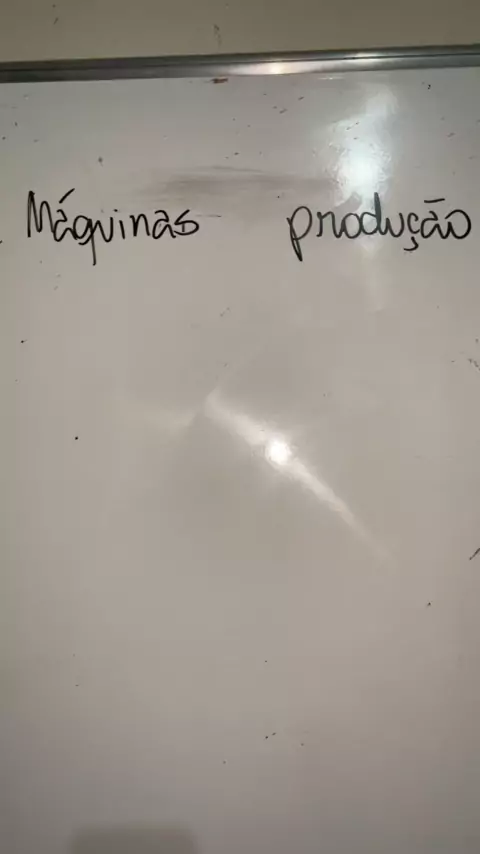 Máquinas produção